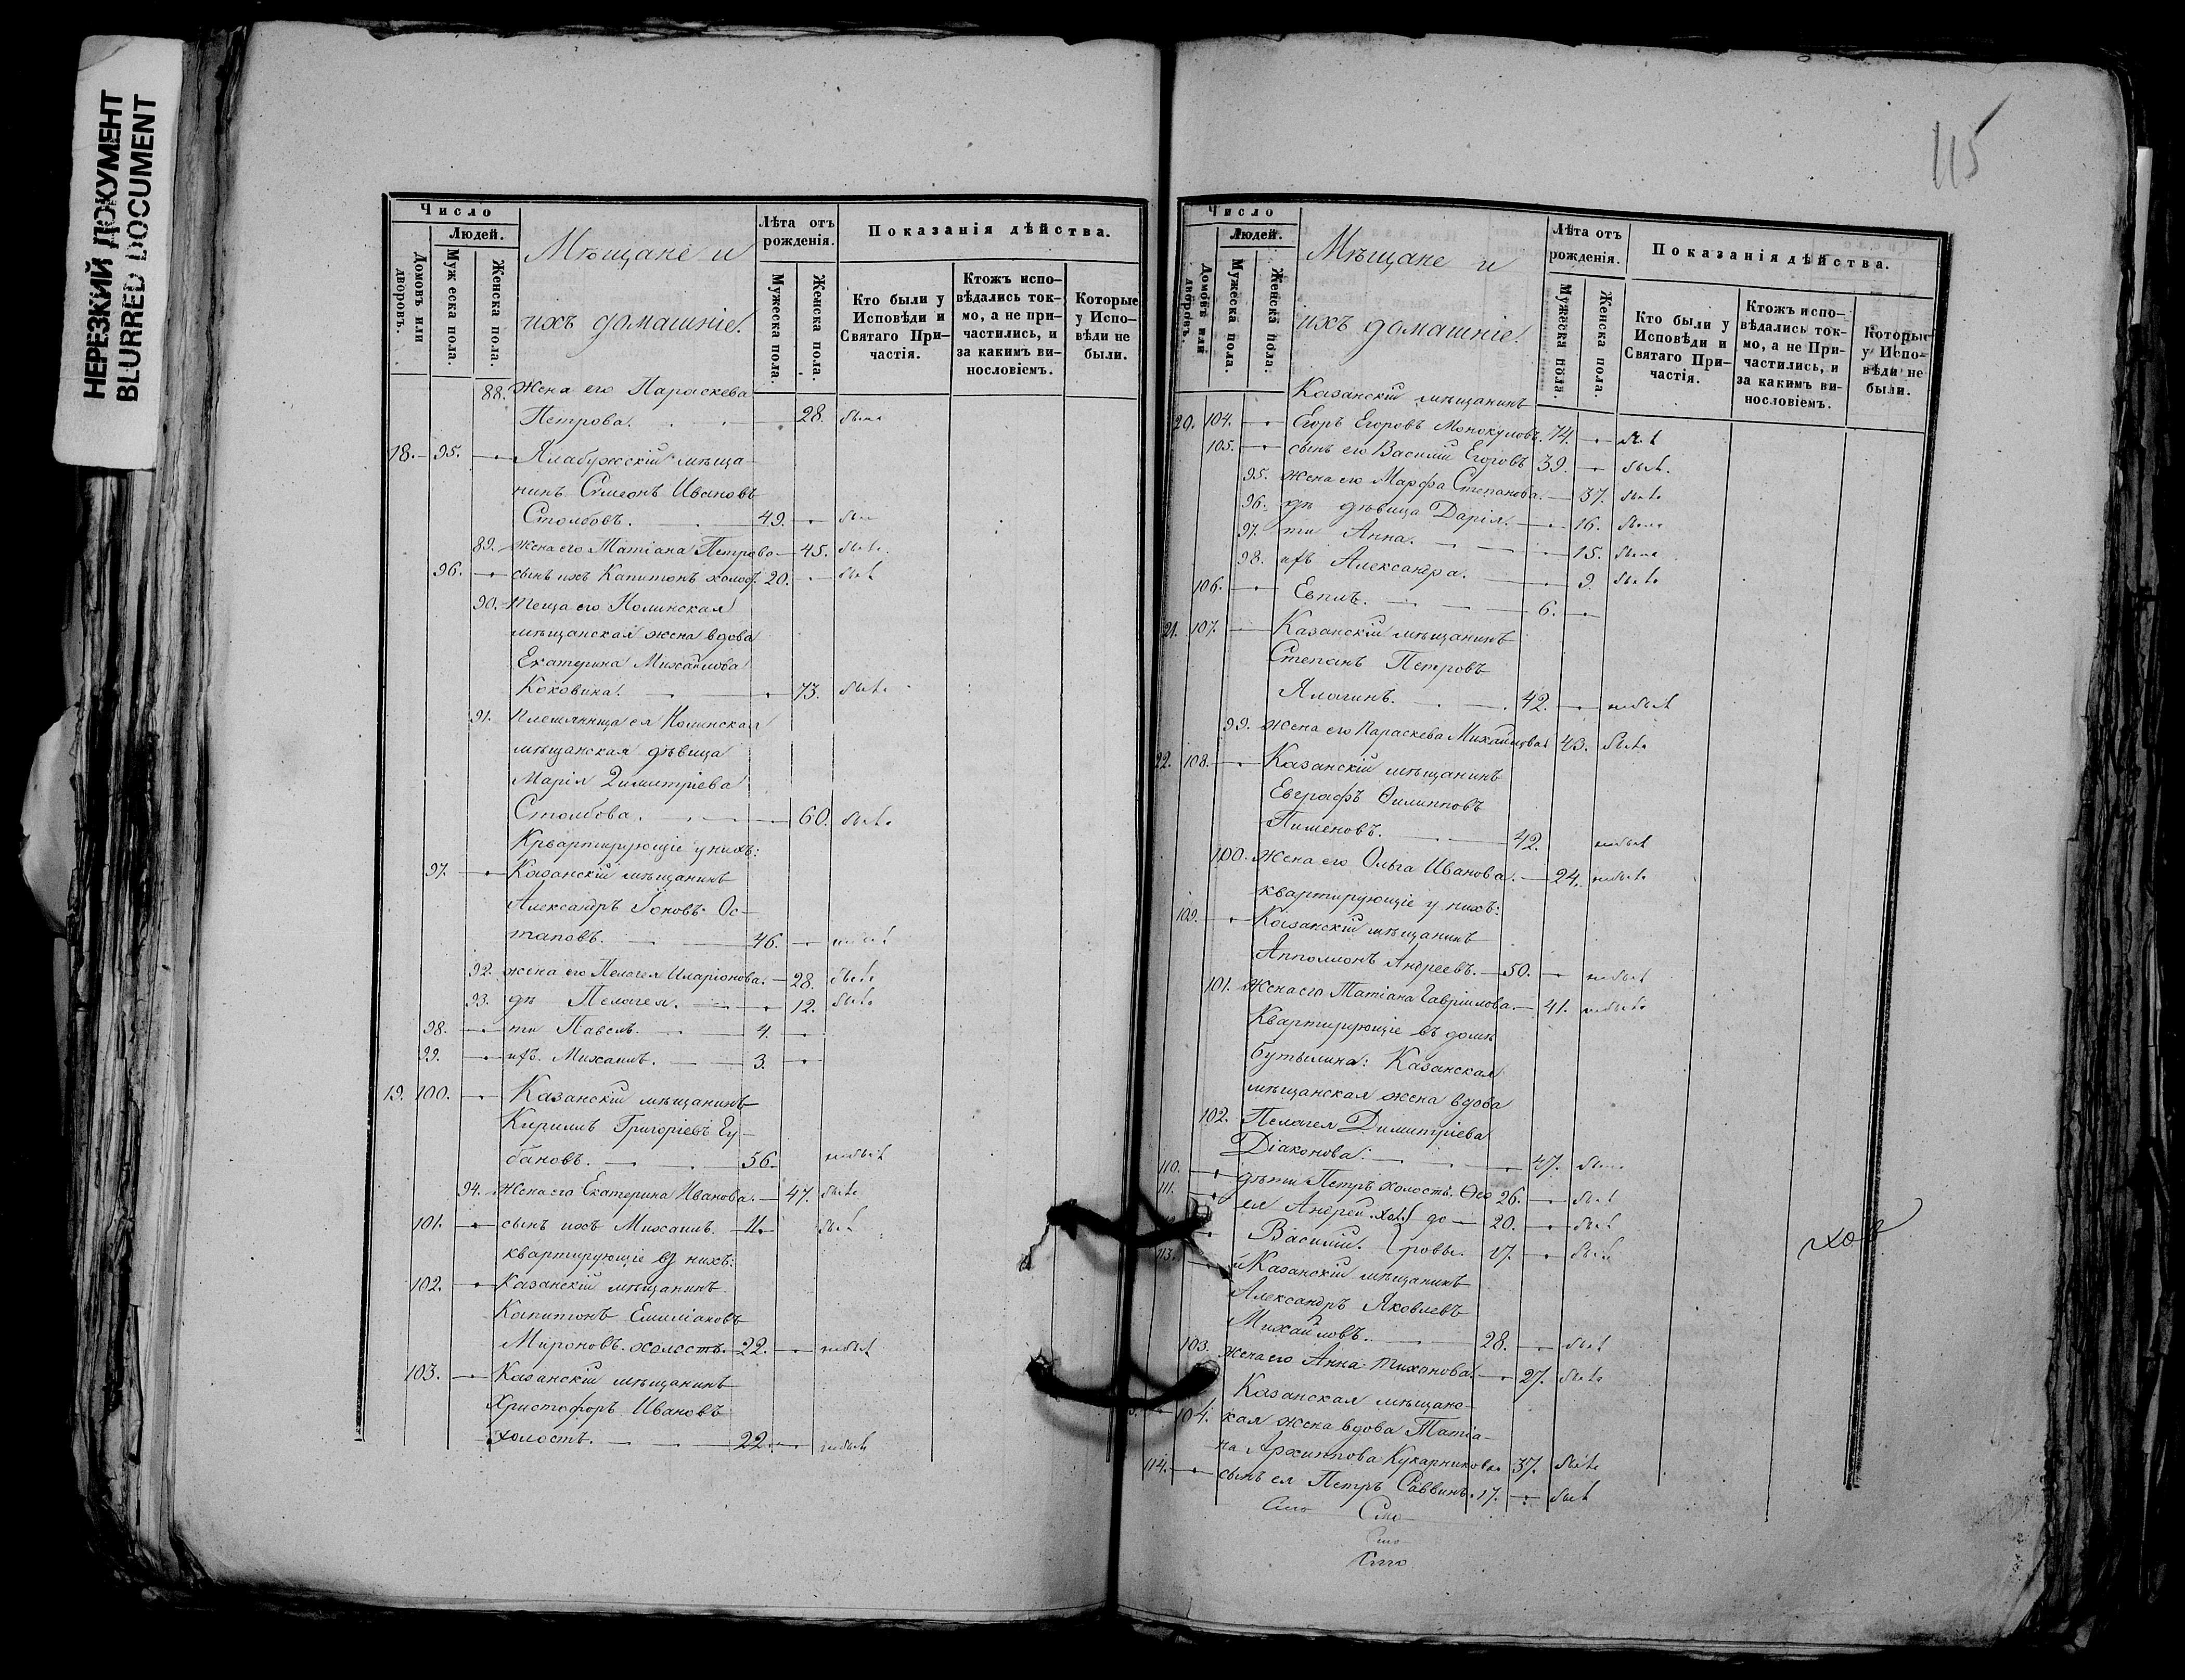 НЕРЕЗКИЙ ДОКУМЕНТ
BLURRED DOCUMENT
Число
Людей.
Домовъ или дворовъ.
Мужеска пола.
Женска пола.
Мѣщане и
ихъ домашніе.
Лѣта отъ рожденія.
Мужеска пола.
Женска пола.
Показанія дѣйства.
Кто были у Исповѣди и Святаго Причастія.
Ктожъ исповѣдались токмо, а не причастились, и за какимъ винословіемъ.
Которые у Исповѣди не были.
88. Жена его Параскева
Петрова. 28. была
18. 95. Ялабужскій мѣща-
нинъ Симеонъ Ивановъ
Столбовъ. 49. был
89. Жена его Татіана Петрова 45. была
96. сынъ ихъ Капитонъ холос. 20. был
90. Теща его Нолинская
мѣщанская жена вдова
Екатерина Михайлова
Коковина. 73. была
91. Племянница ея Нолинская
мѣщанская дѣвица
Марія Димитріева
Столбова. 60. была
Крвартирующіе у нихъ:
97. Казанскій мѣщанинъ
Александръ Іоновъ Ос-
таповъ. 46. небыл
92. жена его Пелагея Иларіонова. 28. была
93. дѣ Пелагея. 12. была
98. ти Павелъ. 4.
99. ихъ Михаилъ. 3.
19. 100. Казанскій мѣщанинъ
Кириллъ Григорьевъ Гу-
бановъ. 56. небыл
94. Жена его Екатерина Иванова. 47. была
101. сынъ ихъ Михаилъ. 11. был
квартирующіе у нихъ:
102. Казанскій мѣщанинъ
Капитонъ Емиліановъ
Мироновъ. холостъ. 22. небыл
103. Казанскій мѣщанинъ
Христофоръ Ивановъ
холостъ. 22. небыл
115
Число
Людей.
Домовъ или дворовъ.
Мужеска пола.
Женска пола.
Мѣщане и
ихъ домашніе.
Лѣта отъ рожденія.
Мужеска пола.
Женска пола.
Показанія дѣйства.
Кто были у Исповѣди и Святаго Причастія.
Ктожъ исповѣдались токмо, а не Причастились, и за какимъ винословіемъ.
Которые у Исповѣди не были.
Казанскій мѣщанинъ
20. 104. Егоръ Егоровъ Монокуловъ. 74. был
105. сынъ его Василій Егоровъ 39. был.
95. Жена его Марфа Степанова. 37. была
96. дѣ дѣвица Дарія. 16. была
97. ти Анна. 15. была
98. ихъ Александра. 9. была
106. Евплъ. 6.
21. 107. Казанскій мѣщанинъ
Степанъ Петровъ
Ялагинъ. 42. небыл
99. Жена его Параскева Михайлова 43. была
22. 108. Казанскій мѣщанинъ
Евграфъ Филипповъ
Пименовъ. 42. небыл
100. Жена его Ольга Иванова. 24. небыла
квартирующіе у нихъ:
109. Казанскій мѣщанинъ
Апполлонъ Андреевъ. 50. небыл
101. Жена его Татіана Гавріилова. 41. небыла
Квартирующіе въ домѣ
Бутылина: Казанская
мѣщанская жена вдова
102. Пелагея Димитріева
Діаконова. 47. была
110. дѣти Петръ холостъ. Ѳео 26. был
111. ея Андрей. хол. до 20. был
Василій. ровы. 17. был
хол
113. Казанскій мѣщанинъ
Александръ Яковлевъ
Михайловъ. 28. был
103. жена его Анна Тихонова. 27. была
Казанская мѣщанс-
104. кая жена вдова Татіа-
на Архиппова Кукарникова 37. была
114. сынъ ея Петръ Саввинъ. 17. был